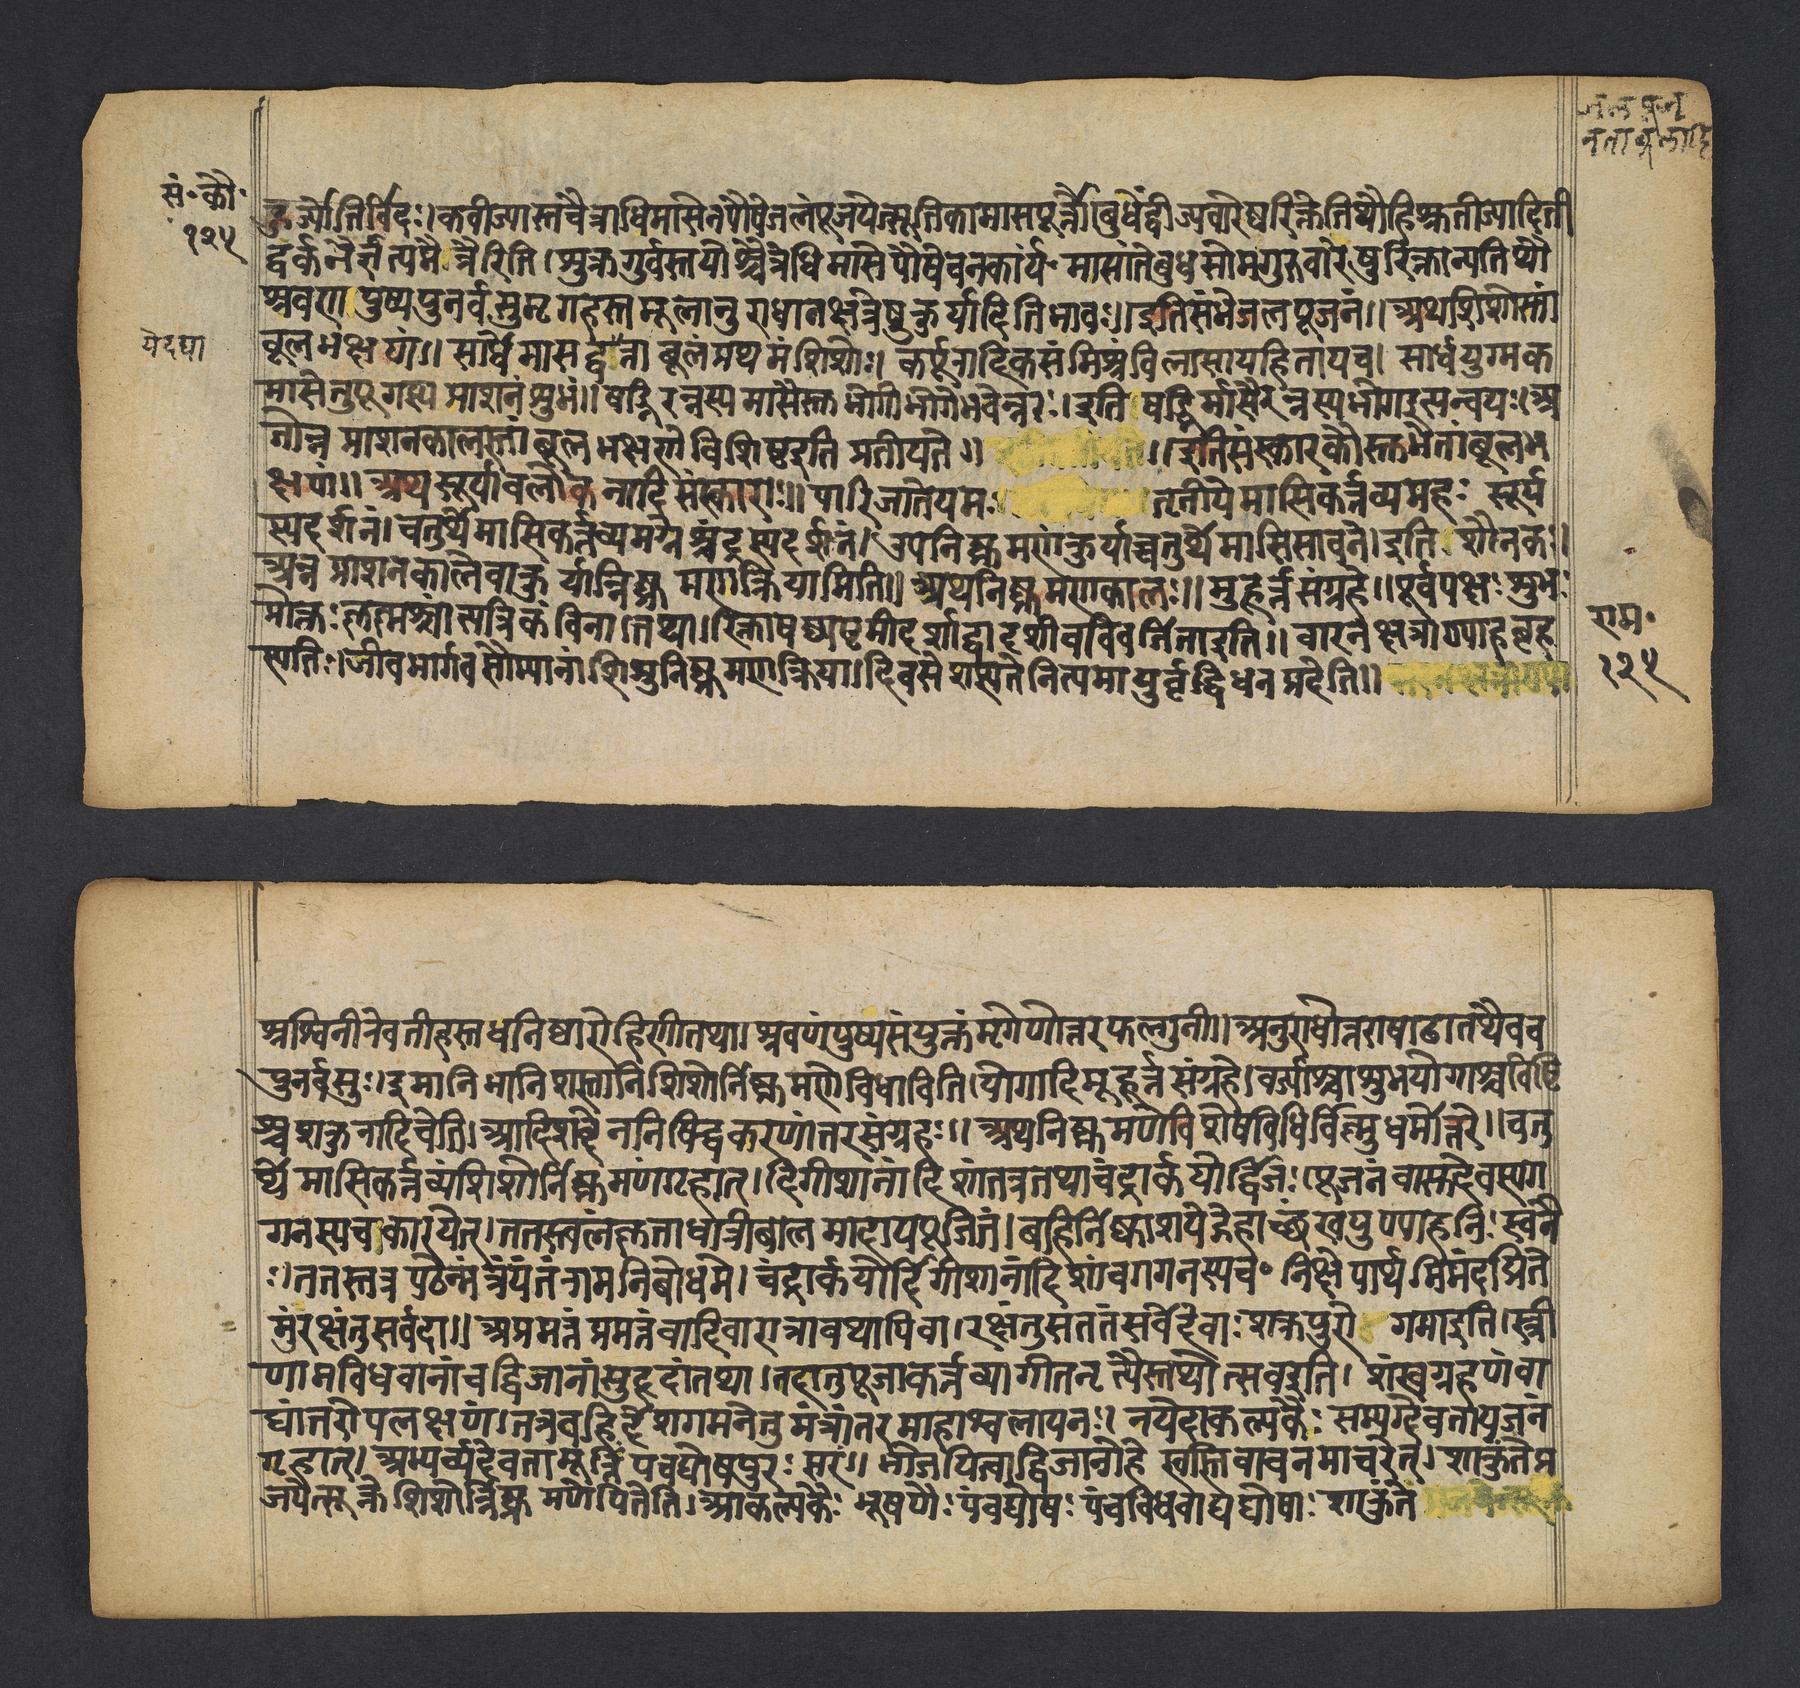 सं॰कौ॰
१२५
र्ज्योतिर्विदः। कवीज्यास्तचैत्राधिमासेनपौषेजलंपूजयेत्सूतिकामासपूर्त्तौ। बुधेंद्वीज्यवारेषरिक्तेतिथौहिश्रुतीज्यादिती
द्वर्कनैर्ऋत्यमैत्रैरिति। शुक्रगुर्वस्तयोश्चैत्रेधिमासेपौषेचनकार्यं॰ मासांतेबुधसोमगुरुवारेषुरिक्तान्यतिथौ
श्रवणपुष्यपुनर्वसुमृगहस्तमूलानुराधानक्षत्रेषुकुर्यादितिभावः॥ इतिसंक्षेजलपूजनं॥ अथशिशोस्तां
बूलभक्षणं॥ सार्धमासद्वयेता बूलंप्रथमंशिशोः। कर्पूरादिकसंमिश्रंविलासायहितायच। सार्धयुग्मक
मासेतुपूगस्यप्राशनंशुभं॥ षड्भिरन्नस्यमासैस्तुभोगीभोगेभवेन्नरः। इति षड्भिर्मासैरन्नस्यभोगइत्यन्वयः। अ
तोन्नप्राशनकालस्तांबूलभक्षणेविशिष्टइतिप्रतीयते॥ ॥ इतिसंस्कारकौस्तुभेतांबूलभ
क्षणं॥ अथसूर्यावलोकनादिसंस्काराः॥ पारिजातेयमः तृतीयेमासिकर्त्तव्यमहः सूर्य
स्यदर्शनं। चतुर्थेमासिकर्त्तव्यमग्नेश्चंद्रस्यदर्शनं। उपनिष्क्रमणंकुर्याच्चतुर्थेमासिसावने। इति शौनकः।
अन्नप्राशनकालेवाकुर्यान्निष्क्रमणक्रियामिति॥ अथनिष्क्रमणकालः॥ मुहूर्त्तसंग्रहे॥ पूर्वपक्षः शुभः
प्रोक्तः कृष्णश्चांत्यत्रिकंविना। तथा। रिक्ताषष्ठ्यष्टमीदर्शाद्वादशीचविवर्जिताइति॥ वारनक्षत्राण्याहबृह
स्पतिः। जीवभार्गवसौम्यानांशिशुनिष्क्रमणक्रिया। दिवसेशस्यतेनित्यमायुर्वृद्धिधनप्रदेति॥
राम॰
१२५
अश्विनीरेवतीहस्तधनिष्ठारोहिणीतथा। श्रवणंपुष्यसंयुक्तंमृगेणोत्तरफल्गुनी॥ अनुराधोत्तराषाढातथैवच
पुनर्वसुः। इमानिभानिशस्तानिशिशोर्निष्क्रमणेविधाविति। योगादिमूहूर्त्तसंग्रहे। वर्ज्याश्चाशुभयोगाश्चविष्टि
श्चशकुनादिचेति। आदिशब्देननिषिद्धकरणांतरसंग्रहः॥ अथनिष्क्रमणेविशेषविधिर्विष्णुधर्मोत्तरे॥ चतु
र्थेमासिकर्त्तव्यंशिशोर्निष्क्रमणंगृहात्। दिगीशानांदिशांतत्रतथाचंद्रार्कयोर्द्विजः पूजनंवासुदेवस्यग
गनस्यचकारयेत्। ततस्त्वलंकृताधात्रीबालमादायपूजितं। बहिर्निष्काशयेद्गेहाच्छंखपुण्याहनिःस्वनै
ः। ततस्तत्रपठेन्मंत्रंयंतंरामनिबोधमे। चंद्रार्कयोर्दिगीशानांदिशांचगगनस्यच॰ निक्षेपार्थमिमंदद्मिते
मुंरक्षंतुसर्वदा॥ अप्रमत्तंप्रमत्तंवादिवारात्रावथापिवा। रक्षंतुसततंसर्वेदेवाः शक्रपुरो गमाइति। स्त्री
णामविधवानांचद्विजानांसुहृदांतथा। तदातुपूजाकर्त्तव्यागीतनृत्यैस्तथोत्सवइति। शंखग्रहणंवा
द्यांतरोपलक्षणं। तत्रबहिर्देशगमनेतुमंत्रांतरमाहाश्वलायनः। नयेदाकल्पकैः सम्यग्देवतायजनं
गृहात्। अभ्यर्च्यदेवतामूर्त्तिं पंचघोषपुरः सरं॥ भोजयित्वाद्विजान्गेहे स्वस्तिवाचनमाचरेत्। शाकुंतंप्र
जपेत्सूक्तंशिशोर्निष्क्रमणेपितेति। आकल्पकैः भूषणैः पंचघोषः पंचविधवाद्यघोषाः शाकुंतं